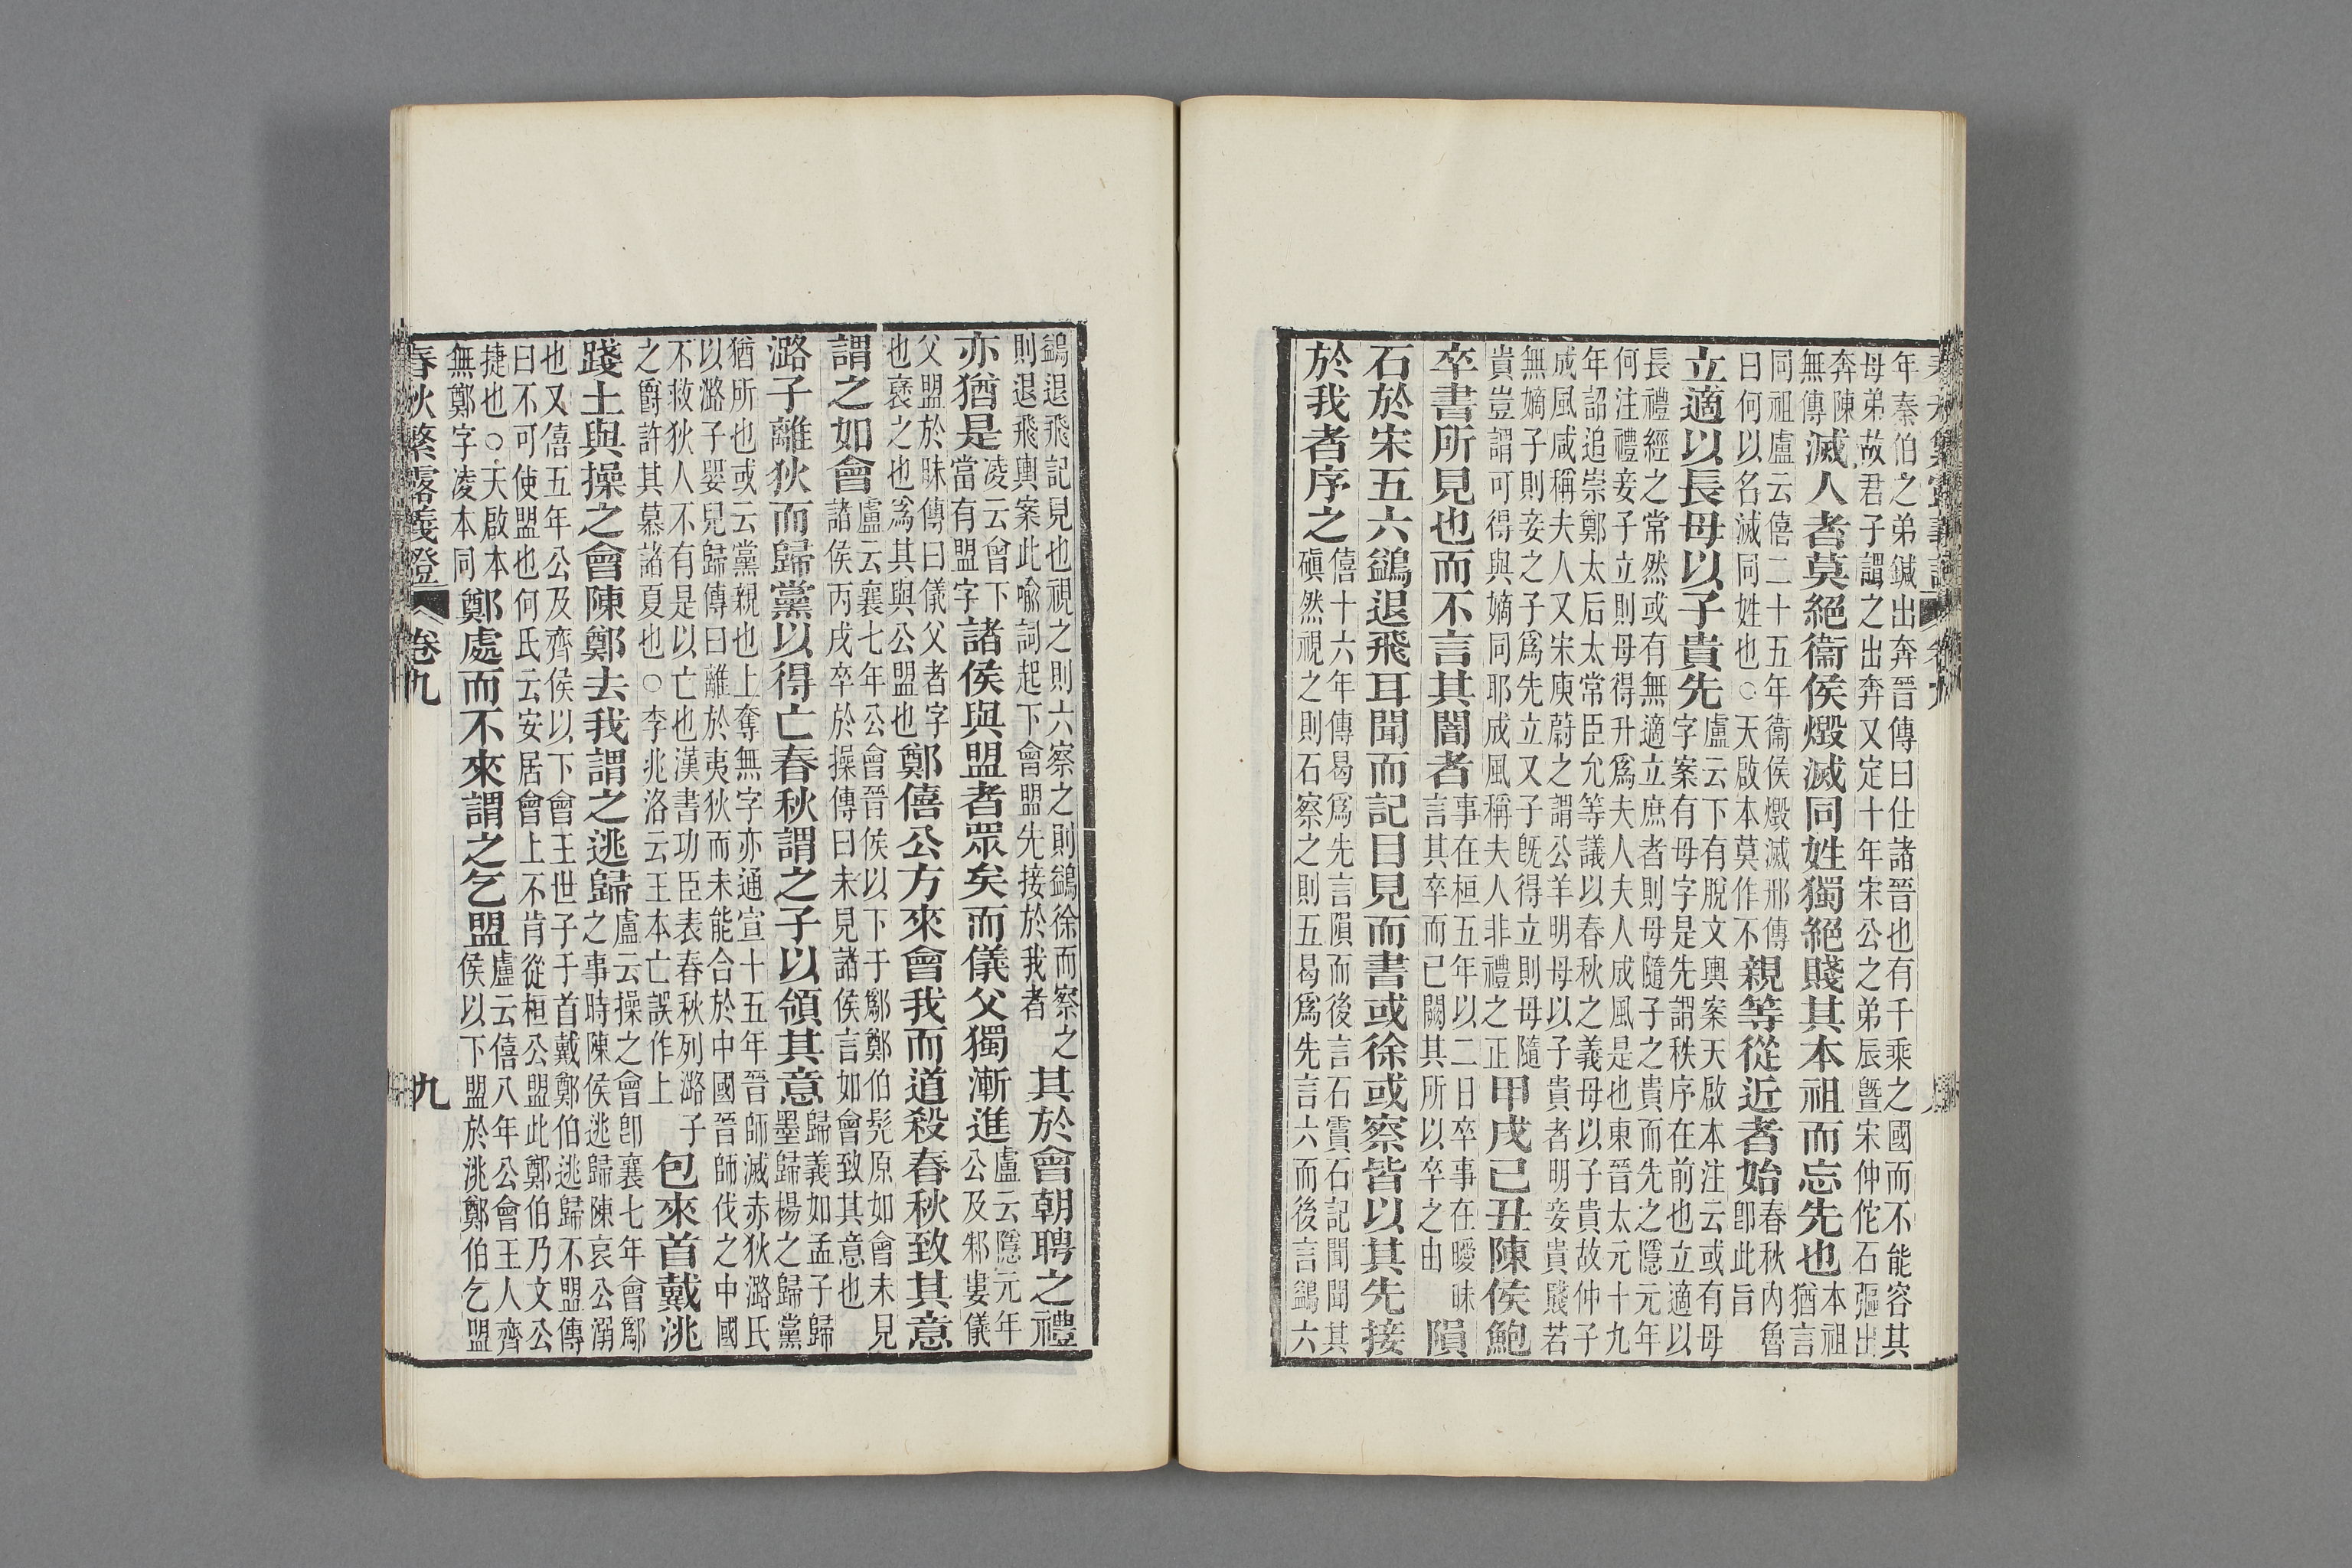 年秦伯之弟鍼出奔晉傳曰仕諸晉也有千乘之國而不能容其
母弟故君子謂之出奔又定十年宋公之弟辰曁宋仲佗石彄出
奔陳
無傳
滅人者莫絕衞侯燬滅同姓獨絕賤其本祖而忘先也
本祖
猶言
同祖盧云僖二十五年衞侯燬滅邢傳
曰何以名滅同姓也○天啟本莫作不
親等從近者始
春秋內魯
卽此旨
立適以長母以子貴先
盧云下有脫文輿案天啟本注云或有母
字案有母字是先謂秩序在前也立適以
長禮經之常然或有無適立庶者則母隨子之貴而先之隱元年
何注禮妾子立則母得升爲夫人夫人成風是也東晉太元十九
年詔追崇鄭太后太常臣允等議以春秋之義母以子貴故仲子
成風咸稱夫人又宋庾蔚之謂公羊明母以子貴者明妾貴賤若
無嫡子則妾之子爲先立又子旣得立則母隨
貴豈謂可得與嫡同耶成風稱夫人非禮之正
甲戌己丑陳侯鮑
卒書所見也而不言其闇者
事在桓五年以二日卒事在曖昧
言其卒而已闕其所以卒之由
隕
石於宋五六鷁退飛耳聞而記目見而書或徐或察皆以其先接
於我者序之
僖十六年傳曷爲先言隕而後言石霣石記聞聞其
磌然視之則石察之則五曷爲先言六而後言鷁六
鷁退飛記見也視之則六察之則鷁徐而察之
則退飛輿案此喻詞起下會盟先接於我者
其於會朝聘之禮
亦猶是
凌云曾下
當有盟字
諸侯與盟者眾矣而儀父獨漸進
盧云隱元年
公及邾婁儀
父盟於昧傳曰儀父者字
也襃之也爲其與公盟也
鄭僖公方來會我而道殺春秋致其意
謂之如會
盧云襄七年公會晉侯以下于鄬鄭伯髡原如會未見
諸侯丙戌卒於操傳曰未見諸侯言如會致其意也
潞子離狄而歸黨以得亡春秋謂之子以領其意
歸義如孟子歸
墨歸楊之歸黨
猶所也或云黨親也上奪無字亦通宣十五年晉師滅赤狄潞氏
以潞子嬰兒歸傳曰離於夷狄而未能合於中國晉師伐之中國
不救狄人不有是以亡也漢書功臣表春秋列潞子
之爵許其慕諸夏也○李兆洛云王本亡誤作上
包來首戴洮
踐土與操之會陳鄭去我謂之逃歸
盧云操之會卽襄七年會鄬
之事時陳侯逃歸陳哀公溺
也又僖五年公及齊侯以下會王世子于首戴鄭伯逃歸不盟傳
曰不可使盟也何氏云安居會上不肯從桓公盟此鄭伯乃文公
捷也○天啟本
無鄭字凌本同
鄭處而不來謂之乞盟
盧云僖八年公會王人齊
侯以下盟於洮鄭伯乞盟
春秋繁露義證
卷九
九